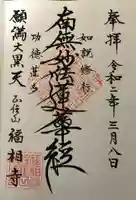 奉拝 令和二年三月八日
如説修行
南無妙法蓮華経
功徳蓮
願満大黒天 正住山 福相寺